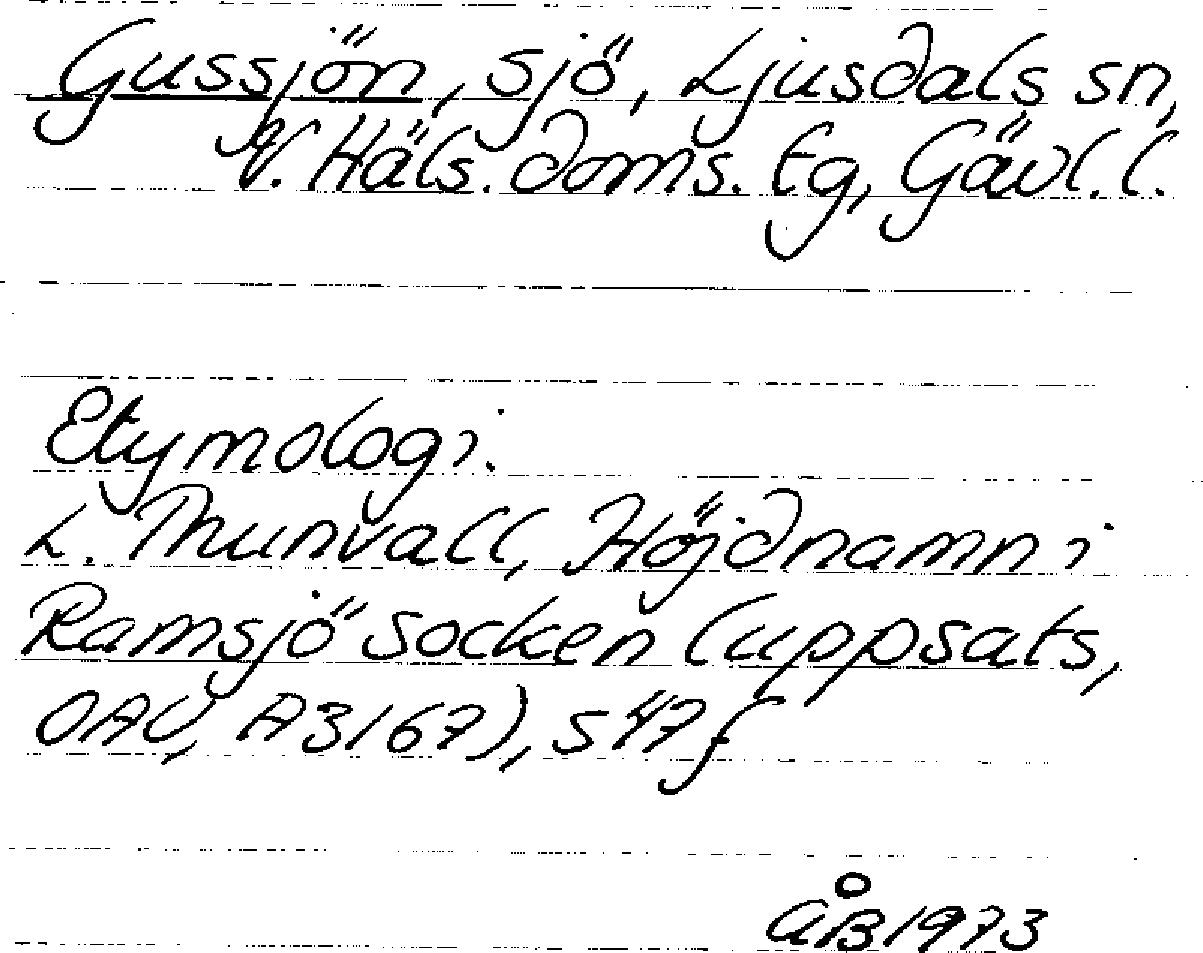 Gussjön, sjö, Ljusdals sn,
V. Häls. doms. tg, Gävl. l.
Etymologi.
L. Thunvall, Höjdnamn i
Ramsjö socken (uppsats,
OAU, A3167), s 47 f
ÅB 1973